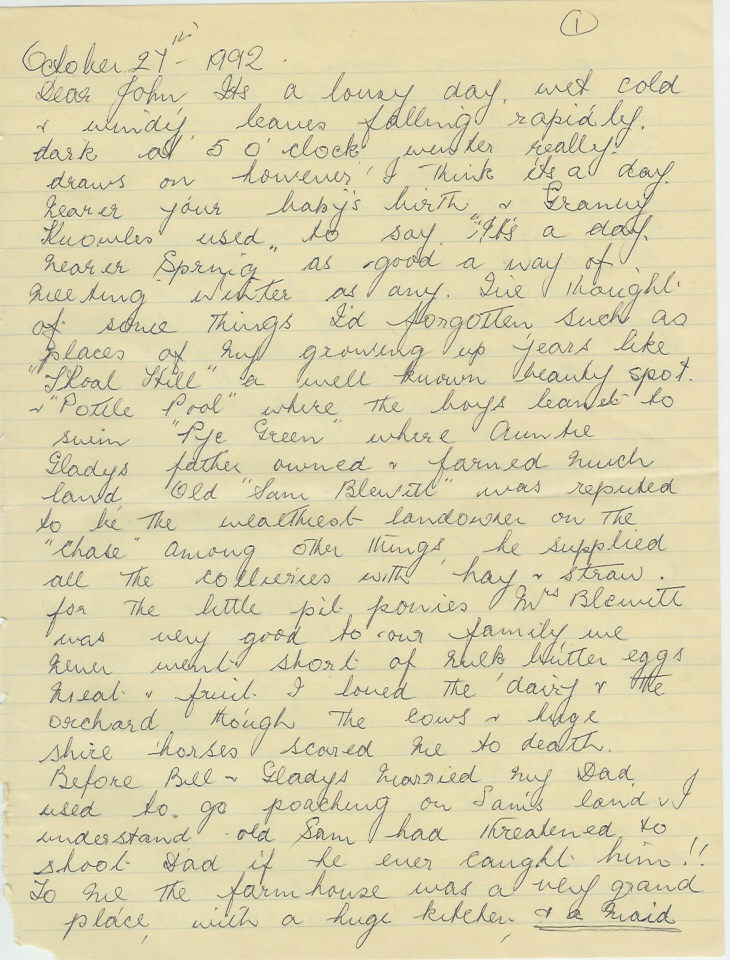 ①
October 27th - 1992.
Dear John Its a lousy day, wet cold
& windy, leaves falling rapidly.
dark at 5 o'clock winter really
draws on however! I think its a day
nearer your baby's birth & Granny
Knowles used to say "It's a day
nearer Spring" as good a way of
meeting winter as any. I've thought
of some things I'd forgotten such as
places of my growing up years like
"Shoal Hill" a well known beauty spot.
& "Pottle Pool" where the boys learnt to
swim "Pye Green" where Auntie
Gladys father owned & farmed much
land Old "Sam Blewitt" was reputed
to be the wealthiest landowner on the
"Chase" among other things, he supplied
all the collieries with hay & straw.
for the little pit ponies Mrs Blewitt
was very good to our family we
never went short of milk butter eggs
meat & fruit. I loved the dairy & the
orchard though the cows & huge
shire horses scared me to death.
Before Bill & Gladys married my Dad
used to go poaching on Sam's land & I
understand old Sam had threatened to
shoot Dad if he ever caught him!!
To me the farmhouse was a very grand
place, with a huge kitchen, & a maid